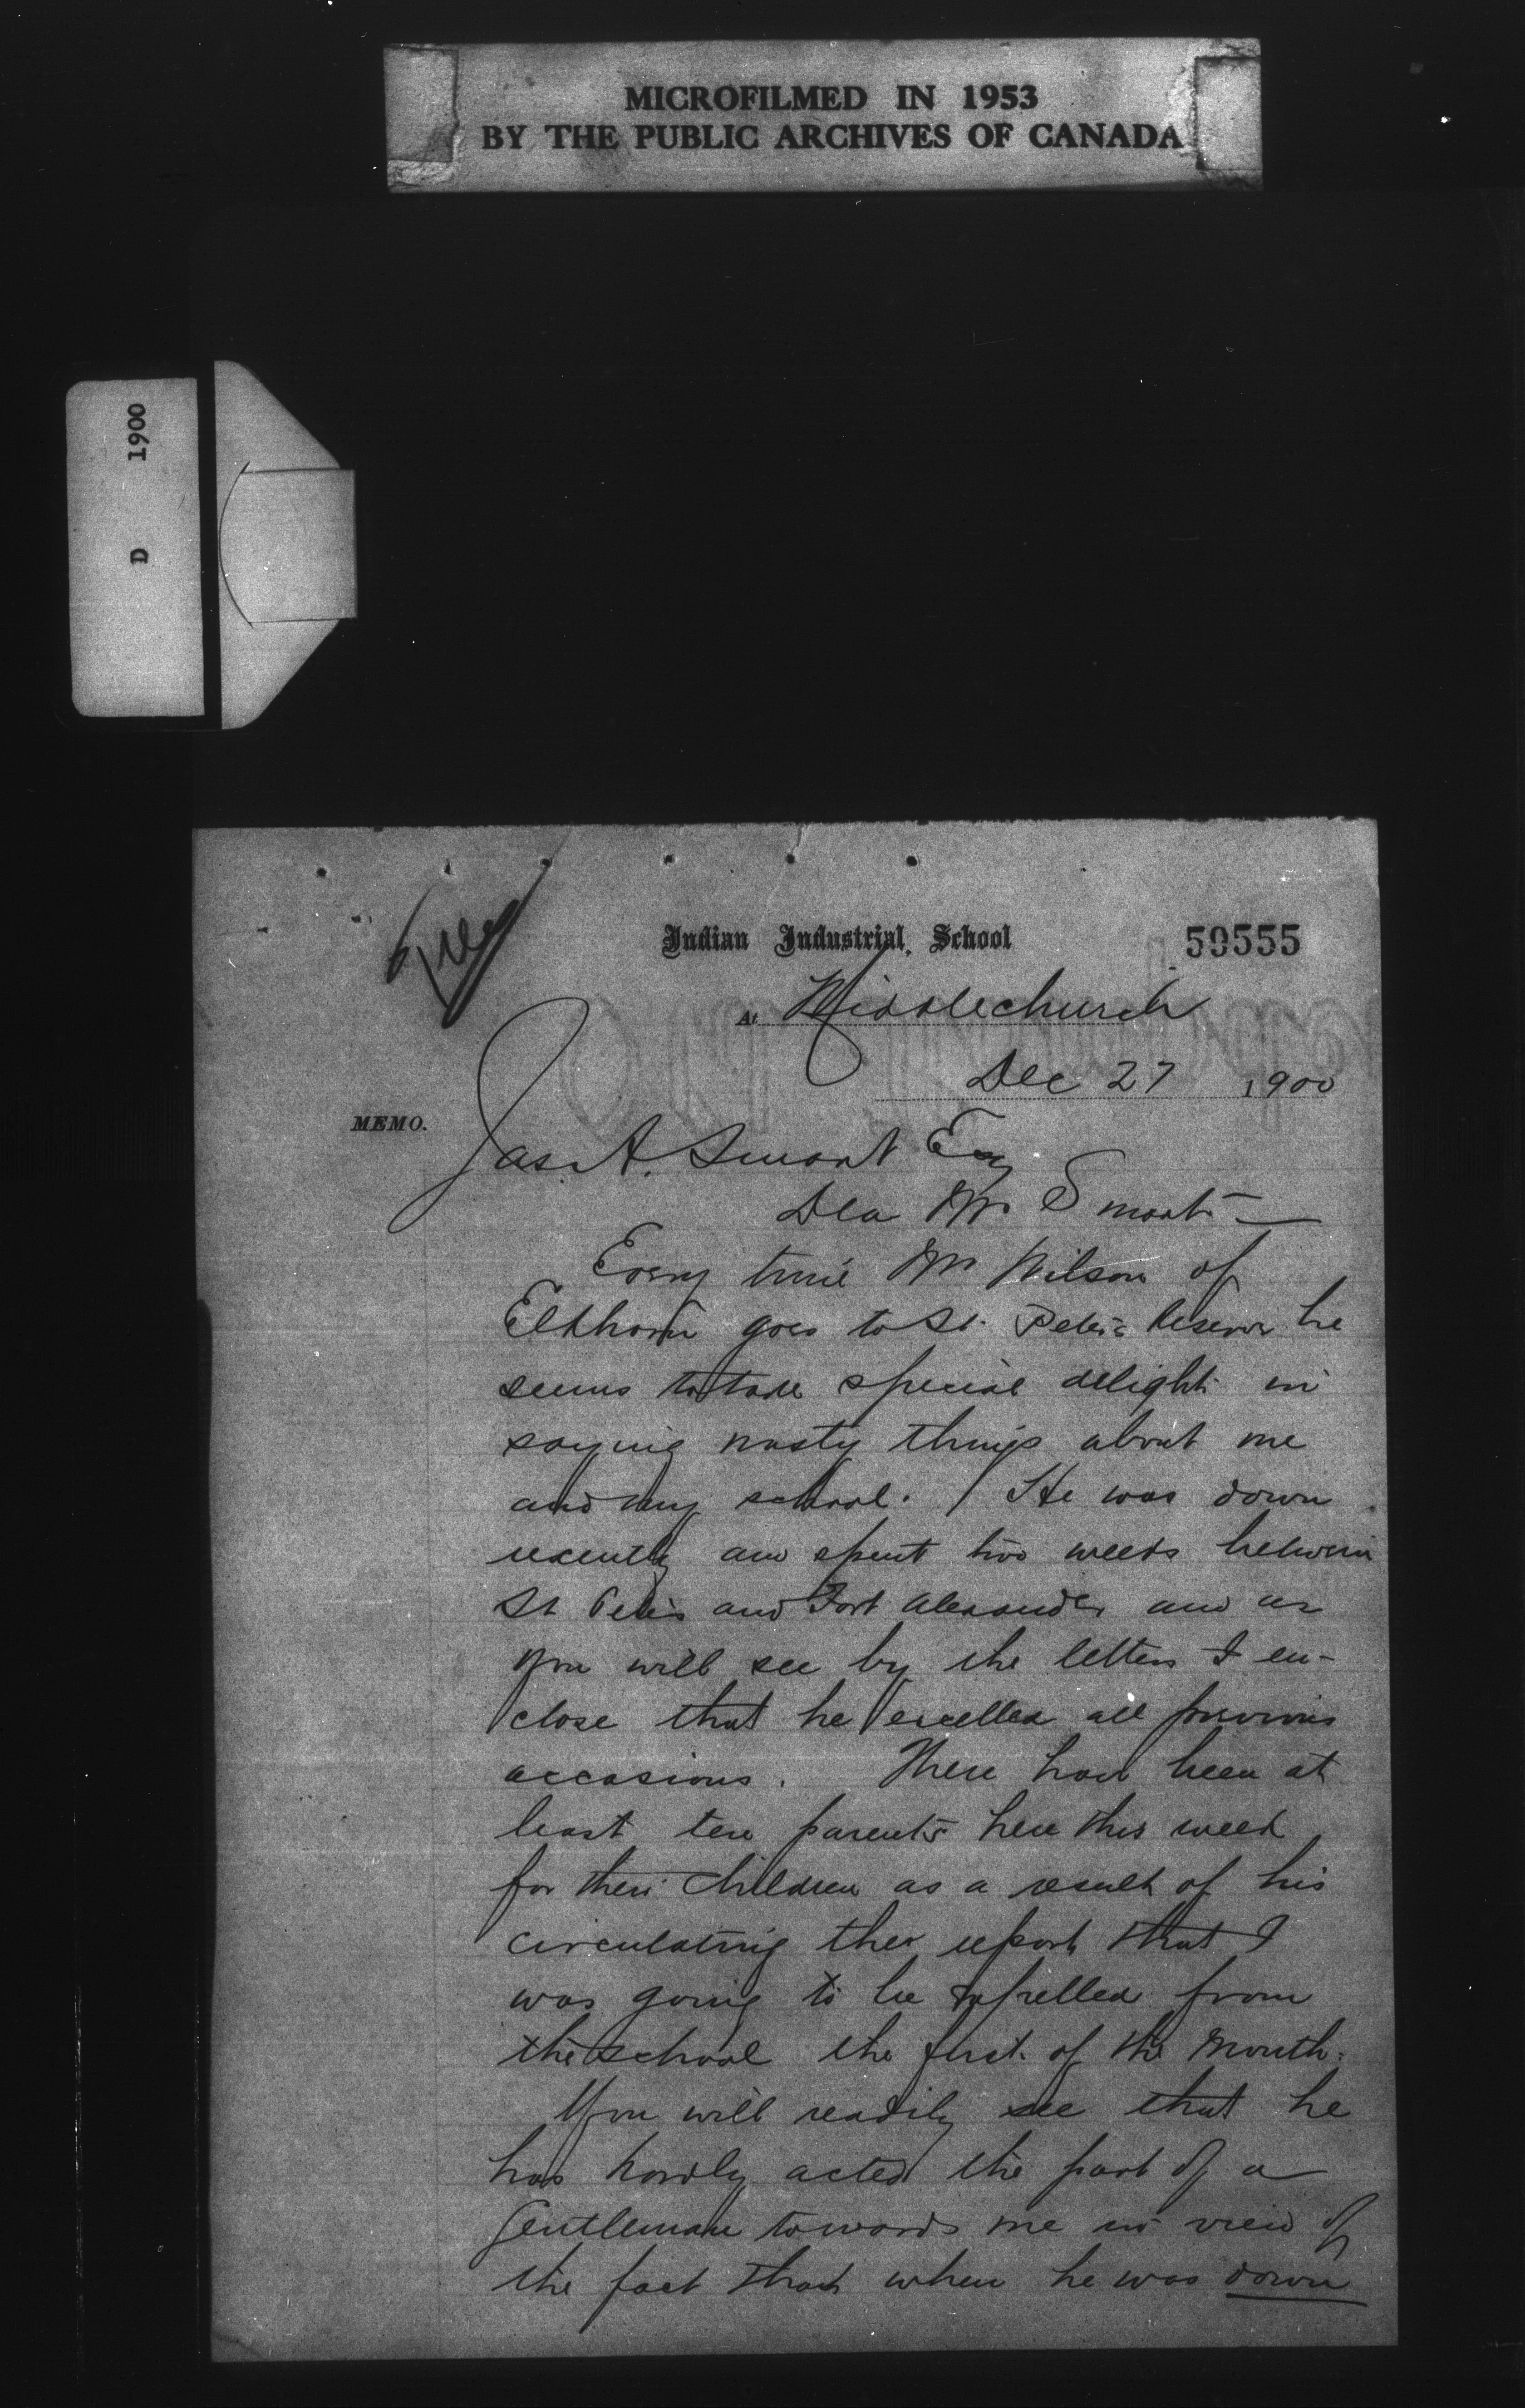 MICROFILMED IN 1953
BY THE PUBLIC ARCHIVES OF CANADA
D 1900
Indian Industrial School
59555
At Middlechurch
Dec 27 1900
MEMO.
Jas. A. Smart Esq
Dear Mr Smart —
Every time Mr Wilson of
Elkhorn goes to St. Peter's Reserve he
seems to take special delight in
saying nasty things about me
and my school. / He was down
recently and spent two weeks between
St Peter's and Fort Alexander and as
you will see by the letters I en-
close that he excelled all previous
occasions. There have been at
least ten parents here this week
for their children as a result of his
circulating the report that I
was going to be expelled from
the school the first of the month.
You will readily see that he
has hardly acted the part of a
gentleman towards me in view of
the fact that when he was down